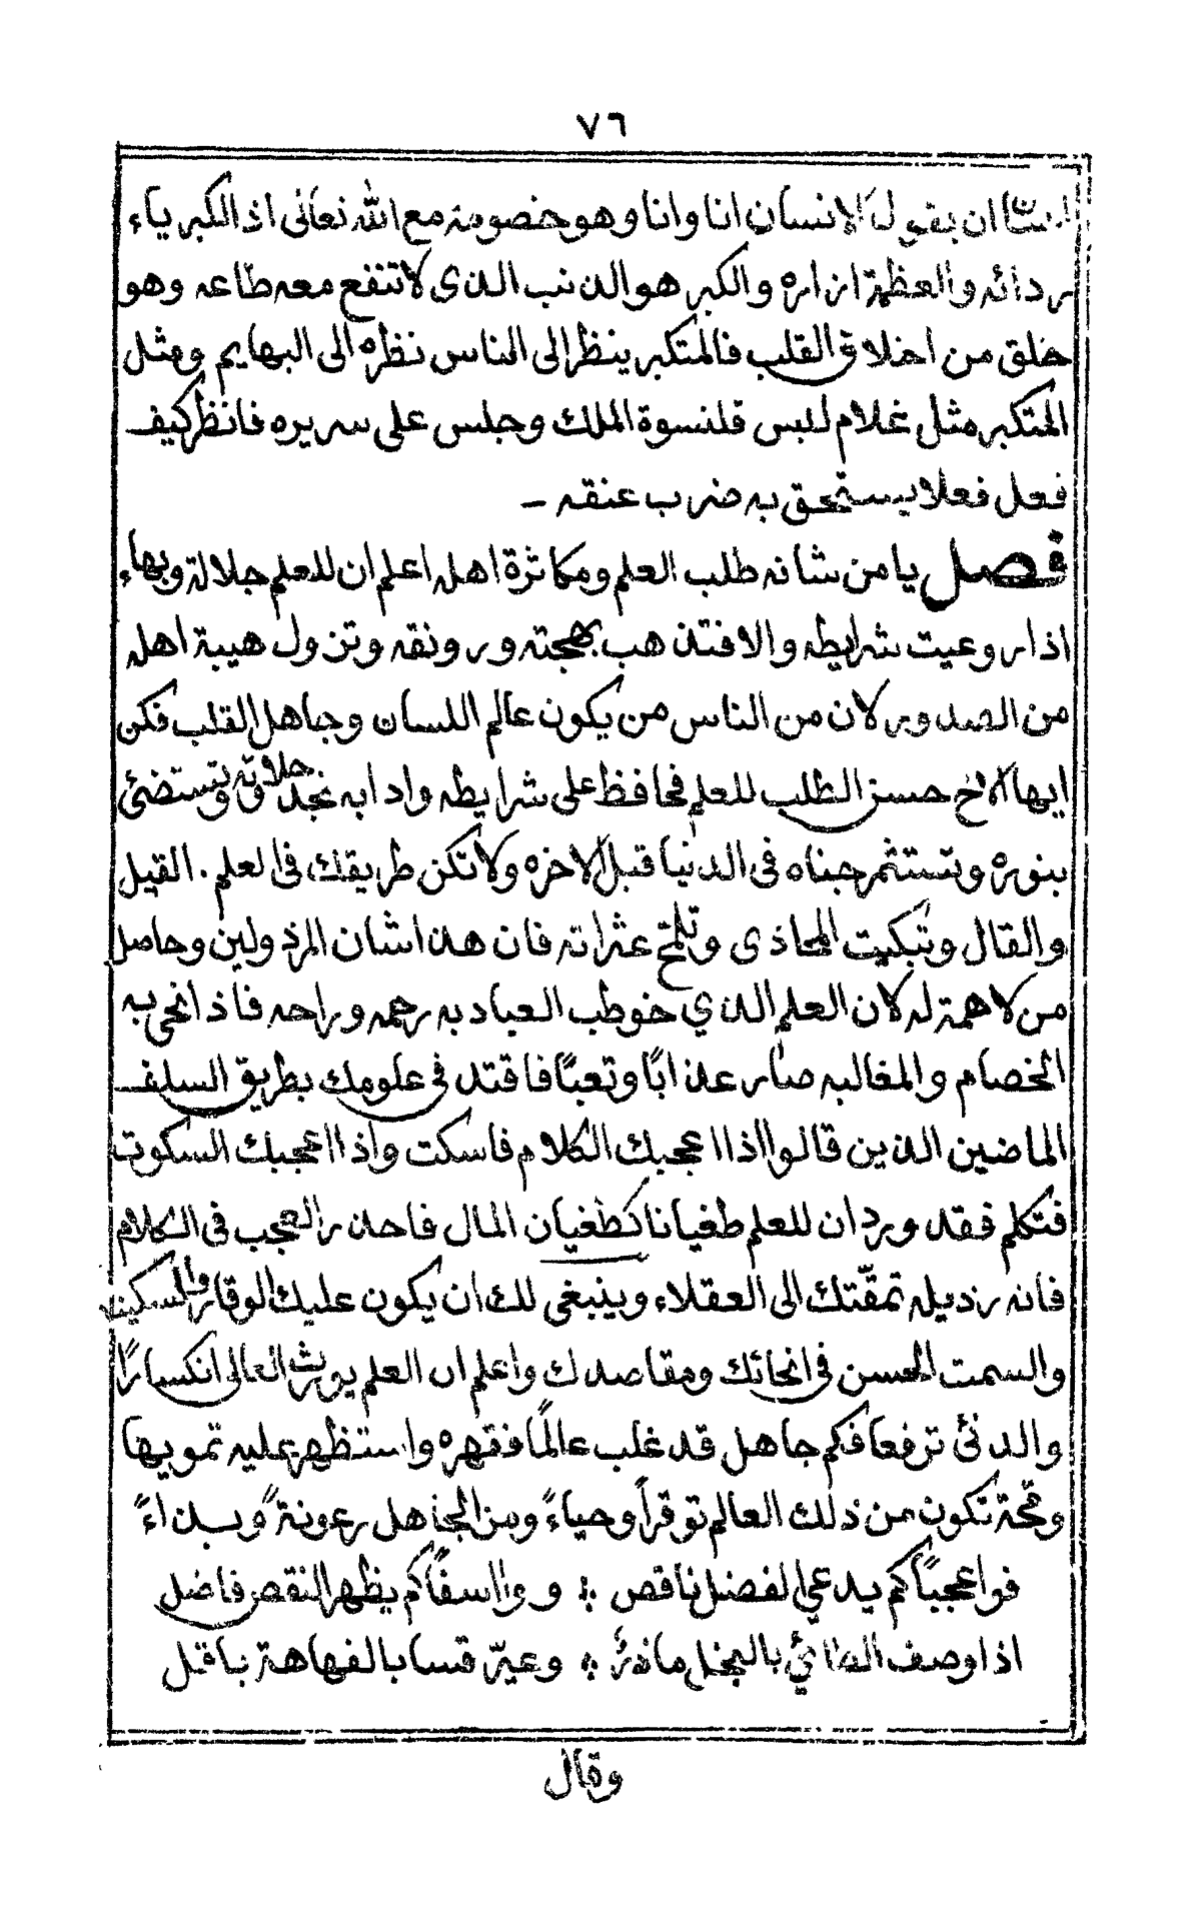 ٧٦
ان يقول الانسان انا وانا وهو خصومة مع الله تعالى اذ الكبرياء
ردائه والعظمة ازاره والكبر هو الذنب الذى لا تنفع معه طاعه وهو
خلق من اخلاق القلب فالمتكبر ينظر الى الناس نظره الى البهايم ومثل
المتكبر مثل غلام لبس قلنسوة الملك وجلس على سريره فانظر كيف
فعل فعلا يستحق به ضرب عنقه -
فصل يا من شانه طلب العلم ومكاثرة اهله اعلم ان للعلم جلالة وبهاء
اذا روعيت شرايطه والا فتذهب بهجته ورونقه وتزول هيبة اهله
من الصدور لان من الناس من يكون عالم اللسان وجاهل القلب فكن
ايها الاخ حسن الطلب للعلم فحافظ على شرايطه وادابه تجد حلاوته وتستضئ
بنوره وتستثمر جناه فى الدنيا قبل الاخره ولا تكن طريقك فى العلم . القيل
والقال وتبكيت المحاذى وتلمح عثراته فان هذا شان المرذولين وحاصل
من لا همة له لان العلم الذي خوطب العباد به رحمه وراحه فاذا نحى به
الخصام والمغالبه صار عذابًا وتعبًا فاقتد فى علومك بطريق السلف
الماضين الذين قالوا اذا اعجبك الكلام فاسكت واذا اعجبك السكوت
فتكلم فقد ورد ان للعلم طغيانا كطغيان المال فاحذر العجب فى الكلام
فانه رذيله تمقّتك الى العقلاء وينبغى لك ان يكون عليك الوقار والسكينه
والسمت الحسن فى انحائك ومقاصدك واعلم ان العلم يورث العالى انكسارًا
والدنئ ترفعا فكم جاهل قد غلب عالمًا فقهره واستظهر عليه تمويها
وقحة تكون من ذلك العالم توقرًا وحياءً ومن الجاهل رعونةً وبذاءً
فواعجبًا كم يدعي الفضل ناقص ؛ ووااسفًا كم يظهر النقص فاضل
اذا وصف الطائي بالبخل مادرٌ ؛ وعيّر قسا بالفهاهة باقل
وقال